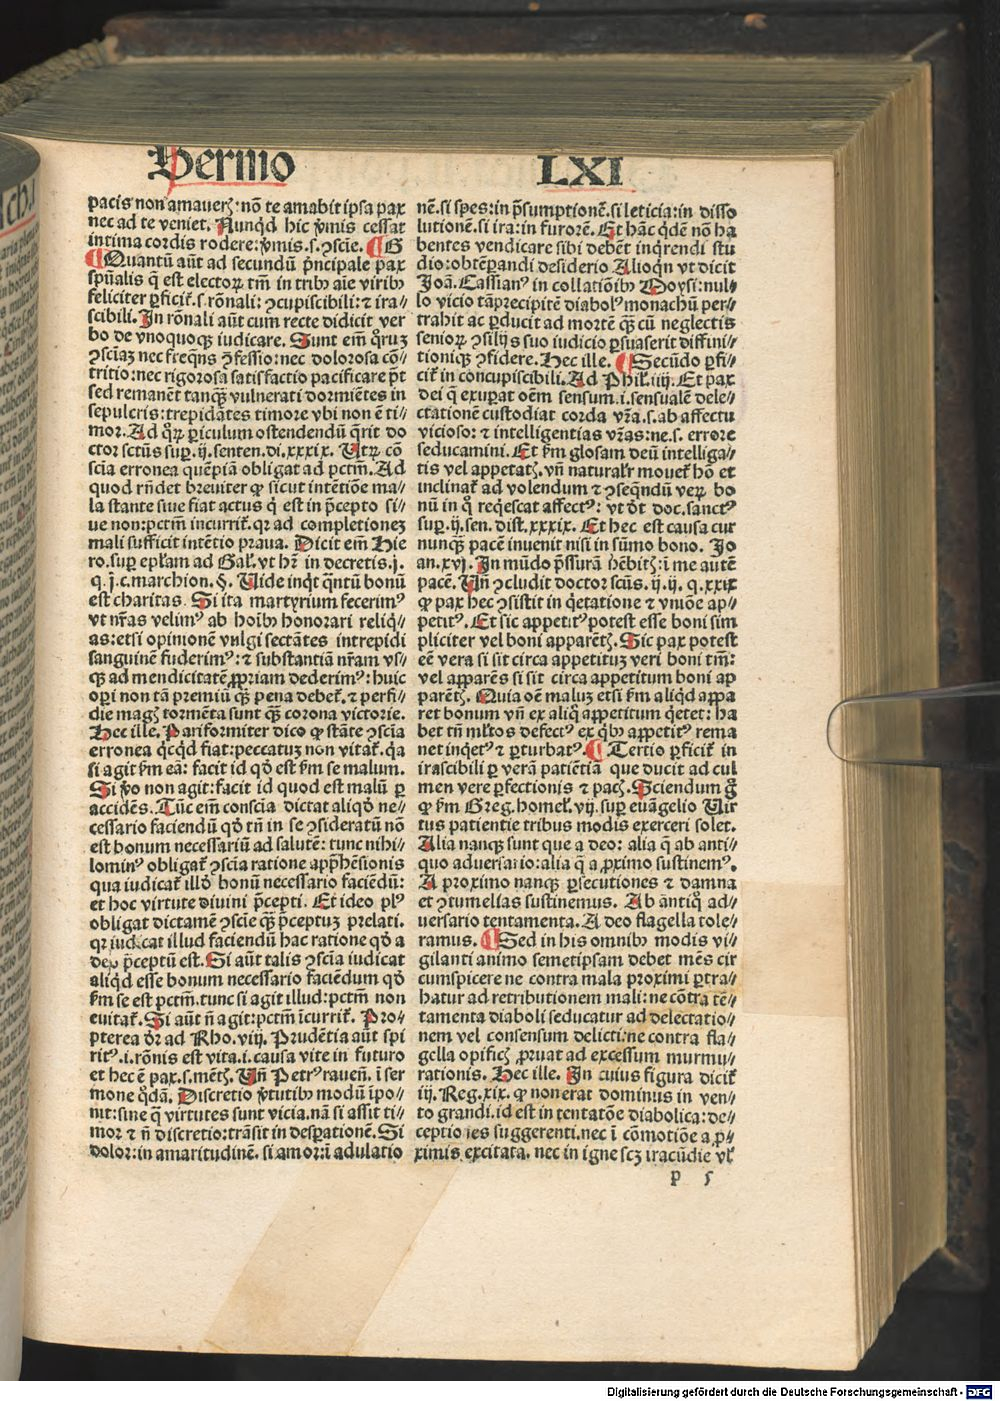 Sermo LXI
pacis non amaverꝫ: nō te amabit ipsa pax
nec ad te veniet. Nunqͥd hic v̓mis cessat
intima cordis rodere: v̓mis .s. ↄscīe. ¶ G
¶ Quantū aūt ad secundū pͥncipale pax
spūalis q̄ est electoꝝ tm̄ in tribꝰ aīe viribꝰ
feliciter ꝑficit̄ .s. rōnali: ↄcupiscibili: ⁊ ira⸗
scibili. In rōnali aūt cum recte didicit ver
bo de vnoquoqꝫ iudicare. Sunt em̄ qͦꝝ
ↄsciāꝫ nec freq̄ns ↄfessio: nec dolorosa cō⸗
tritio: nec rigorosa satisfactio pacificare pn̄t
sed remanēt tanqꝫ vulnerati dormiētes in
sepulcris: trepidātes timore vbi non ē ti⸗
mor. Ad qͦꝝ ꝑiculum ostendendū q̄rit do
ctor sctūs suꝑ .ij. senten. di. xxxix. Vtꝝ cō
scīa erronea quēpiā obligat ad pctm̄. Ad
quod rn̄det breviter ꝙ sicut intētiōe ma⸗
la stante siue fiat actus qͥ est in p̄cepto si⸗
ue non: pctm̄ incurrit̄. qꝛ ad completioneꝫ
mali sufficit intētio praua. Dicit em̄ Hie
ro. suꝑ epl̄am ad Gal̄. vt hr̄ in decretis .j.
q. j. c. marchion. §. Vide inqͥt qͣntū bonū
est charitas. Si ita martyrium fecerimꝰ
vt nr̄as velimꝰ ab hoībꝰ honorari reliqͥ⸗
as: etsi opinionē vulgi sectātes intrepidi
sanguinē fuderimꝰ: ⁊ substantiā nr̄am vs⸗
qꝫ ad mendicitatē ꝓpriam dederimꝰ: huic
oꝑi non tā premiū qꝫ pena debet̄. ⁊ perfi⸗
die magꝭ tormēta sunt qꝫ corona victorie.
Hec ille. Pariformiter dico ꝙ stāte ↄscīa
erronea qͥcqͥd fiat: peccatuꝫ non vitat̄. qͥa
si agit s̄m eā: facit id qd̓ est s̄m se malum.
Si v̓o non agit: facit id quod est malū ꝑ
accidēs. Tūc em̄ conscīa dictat aliqd̓ ne⸗
cessario faciendū qd̓ tn̄ in se ↄsideratū nō
est bonum necessariū ad salutē: tunc nihi⸗
lominꝰ obligat̄ ↄscīa ratione app̄hēsionis
qua iudicat̄ illd̓ bonū necessario faciēdū:
et hoc virtute diuini p̄cepti. Et ideo plꝰ
obligat dictamē ↄscīe qꝫ p̄ceptuꝫ prelati.
qꝛ iudicat illud faciendū hac ratione qd̓ a
deo p̄ceptū est. Si aūt talis ↄscīa iudicat
aliqͥd esse bonum necessario faciēdum qd̓
s̄m se est pctm̄. tunc si agit illud: pctm̄ non
euitat̄. Si aūt n̄ agit: pctm̄ īcurrit̄. Pro⸗
pterea dr̄ ad Rho. viij. Prudētia aūt spi
ritꝰ .i. rōnis est vita .i. causa vite in futuro
et hec ē pax .s. mētꝭ. Vn̄ Petrꝰ rauen̄. ī ser
mone qͦdā. Discretio v̓tutibꝰ modū īpo⸗
nit: sine qͣ virtutes sunt vicia. nā si assit ti⸗
mor ⁊ n̄ discretio: trāsit in desꝑationē. Si
dolor: in amaritudinē. si amor: ī adulatio
nē. si spes: in p̄sumptionē. si leticia: in disso
lutionē. si ira: in furorē. Et hāc qͥdē nō ha
bentes vendicare sibi debēt inqͥrendi stu
dio: obtēꝑandi desiderio Alioqͥn vt dicit
Joā. Cassianꝰ in collatiōibꝰ Moysi: nul⸗
lo vicio tā precipitē diabolꝰ monachū per⸗
trahit ac ꝑducit ad mortē qꝫ cū neglectis
senioꝝ ↄsilijs suo iudicio ꝑsuaserit diffini⸗
tioniqꝫ ↄfidere. Hec ille. ¶ Secūdo ꝑfi⸗
cit̄ in concupiscibili. Ad Phil̄. iiij. Et pax
dei q̄ exuꝑat oēm sensum .i. sensualē dele⸗
ctationē custodiat corda vr̄a .s. ab affectu
vicioso: ⁊ intelligentias vr̄as: ne .s. errore
seducamini. Et s̄m glosam deū intelliga⸗
tis vel appetatꝭ. vn̄ naturalr̄ mouet̄ hō et
inclinat̄ ad volendum ⁊ ↄseqͥndū veꝝ bo
nū in qͦ reqͥescat affectꝰ: vt dr̄t doc. sanctꝰ
suꝑ .ij. sen. dist. xxxix. Et hec est causa cur
nunqꝫ pacē invenit nisi in sūmo bono. Jo
an. xvj. In mūdo p̄ssurā hēbitꝭ: ī me autē
pacē. Vn̄ ↄcludit doctor scūs. ij. ij. q. xxix
ꝙ pax hec ↄsistit in qͥetatione ⁊ vniōe ap⸗
petitꝰ. Et sic appetitꝰ potest esse boni sim
pliciter vel boni apparētꝭ. Sic pax potest
eē vera si sit circa appetituꝫ veri boni tm̄:
vel apparēs si sit circa appetitum boni ap
parētꝭ. Quia oē maluꝫ etsi s̄m aliqͥd appa
ret bonum vn̄ ex aliqͣ appetitum qͥetet: ha
bet tn̄ ml̄tos defectꝰ ex qͥbꝰ appetitꝰ rema
net inqͥetꝰ ⁊ ꝑturbatꝰ. ¶ Tertio ꝑficit̄ in
irascibili ꝑ verā patiētiā que ducit ad cul
men vere ꝑfectionis ⁊ pacꝭ. Sciendum gͦ
ꝙ s̄m Greg. homel̄. vij. suꝑ euāgelio Vir
tus patientie tribus modis exerceri solet.
Alia nanqꝫ sunt que a deo: alia q̄ ab anti⸗
quo aduersario: alia q̄ a ꝓximo sustinemꝰ.
A proximo nanqꝫ ꝑsecutiones ⁊ damna
et ↄtumelias sustinemus. Ab āntiqͦ ad⸗
uersario tentamenta. A deo flagella tole⸗
ramus. ¶ Sed in his omnibꝰ modis vi⸗
gilanti animo semetipsam debet mēs cir
cumspicere ne contra mala proximi ꝑtra⸗
hatur ad retributionem mali: ne cōtra tē⸗
tamenta diaboli seducatur ad delectatio⸗
nem vel consensum delicti: ne contra fla⸗
gella opificꝭ ꝓruat ad excessum murmu⸗
rationis. Hec ille. In cuius figura dicit̄
iij. Reg. xix. ꝙ non erat dominus in ven⸗
to grandi. id est in tentatōe diabolica: de⸗
ceptiones suggerenti. nec ī cōmotiōe a ꝓ⸗
ximis excitata. nec in igne scꝫ iracūdie vl̄
p 5
Digitalisierung gefördert durch die Deutsche Forschungsgemeinschaft - DFG